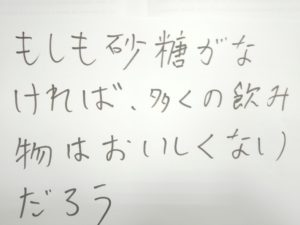 もしも砂糖がな
ければ、多くの飲み
物はおいしくない
だろう